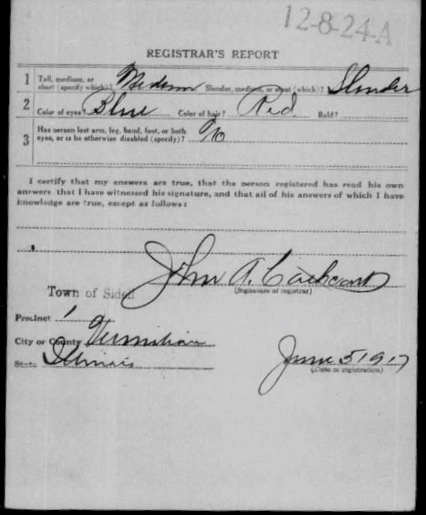 12-8-24-A
REGISTRAR'S REPORT
1 Tall, medium, or short (specify which)? Medium Slender, medium, or stout (which)? Slender
2 Color of eyes? Blue Color of hair? Red Bald?
3 Has person lost arm, leg, hand, foot, or both eyes, or is he otherwise disabled (specify)? No
I certify that my answers are true, that the person registered has read his own
answers, that I have witnessed his signature, and that all of his answers of which I have
knowledge are true, except as follows:
John A.
(Signature of registrar)
Town of Sidell
Precinct 1
City or County Vermilion
State Illinois
June 5 1917
(Date of registration)